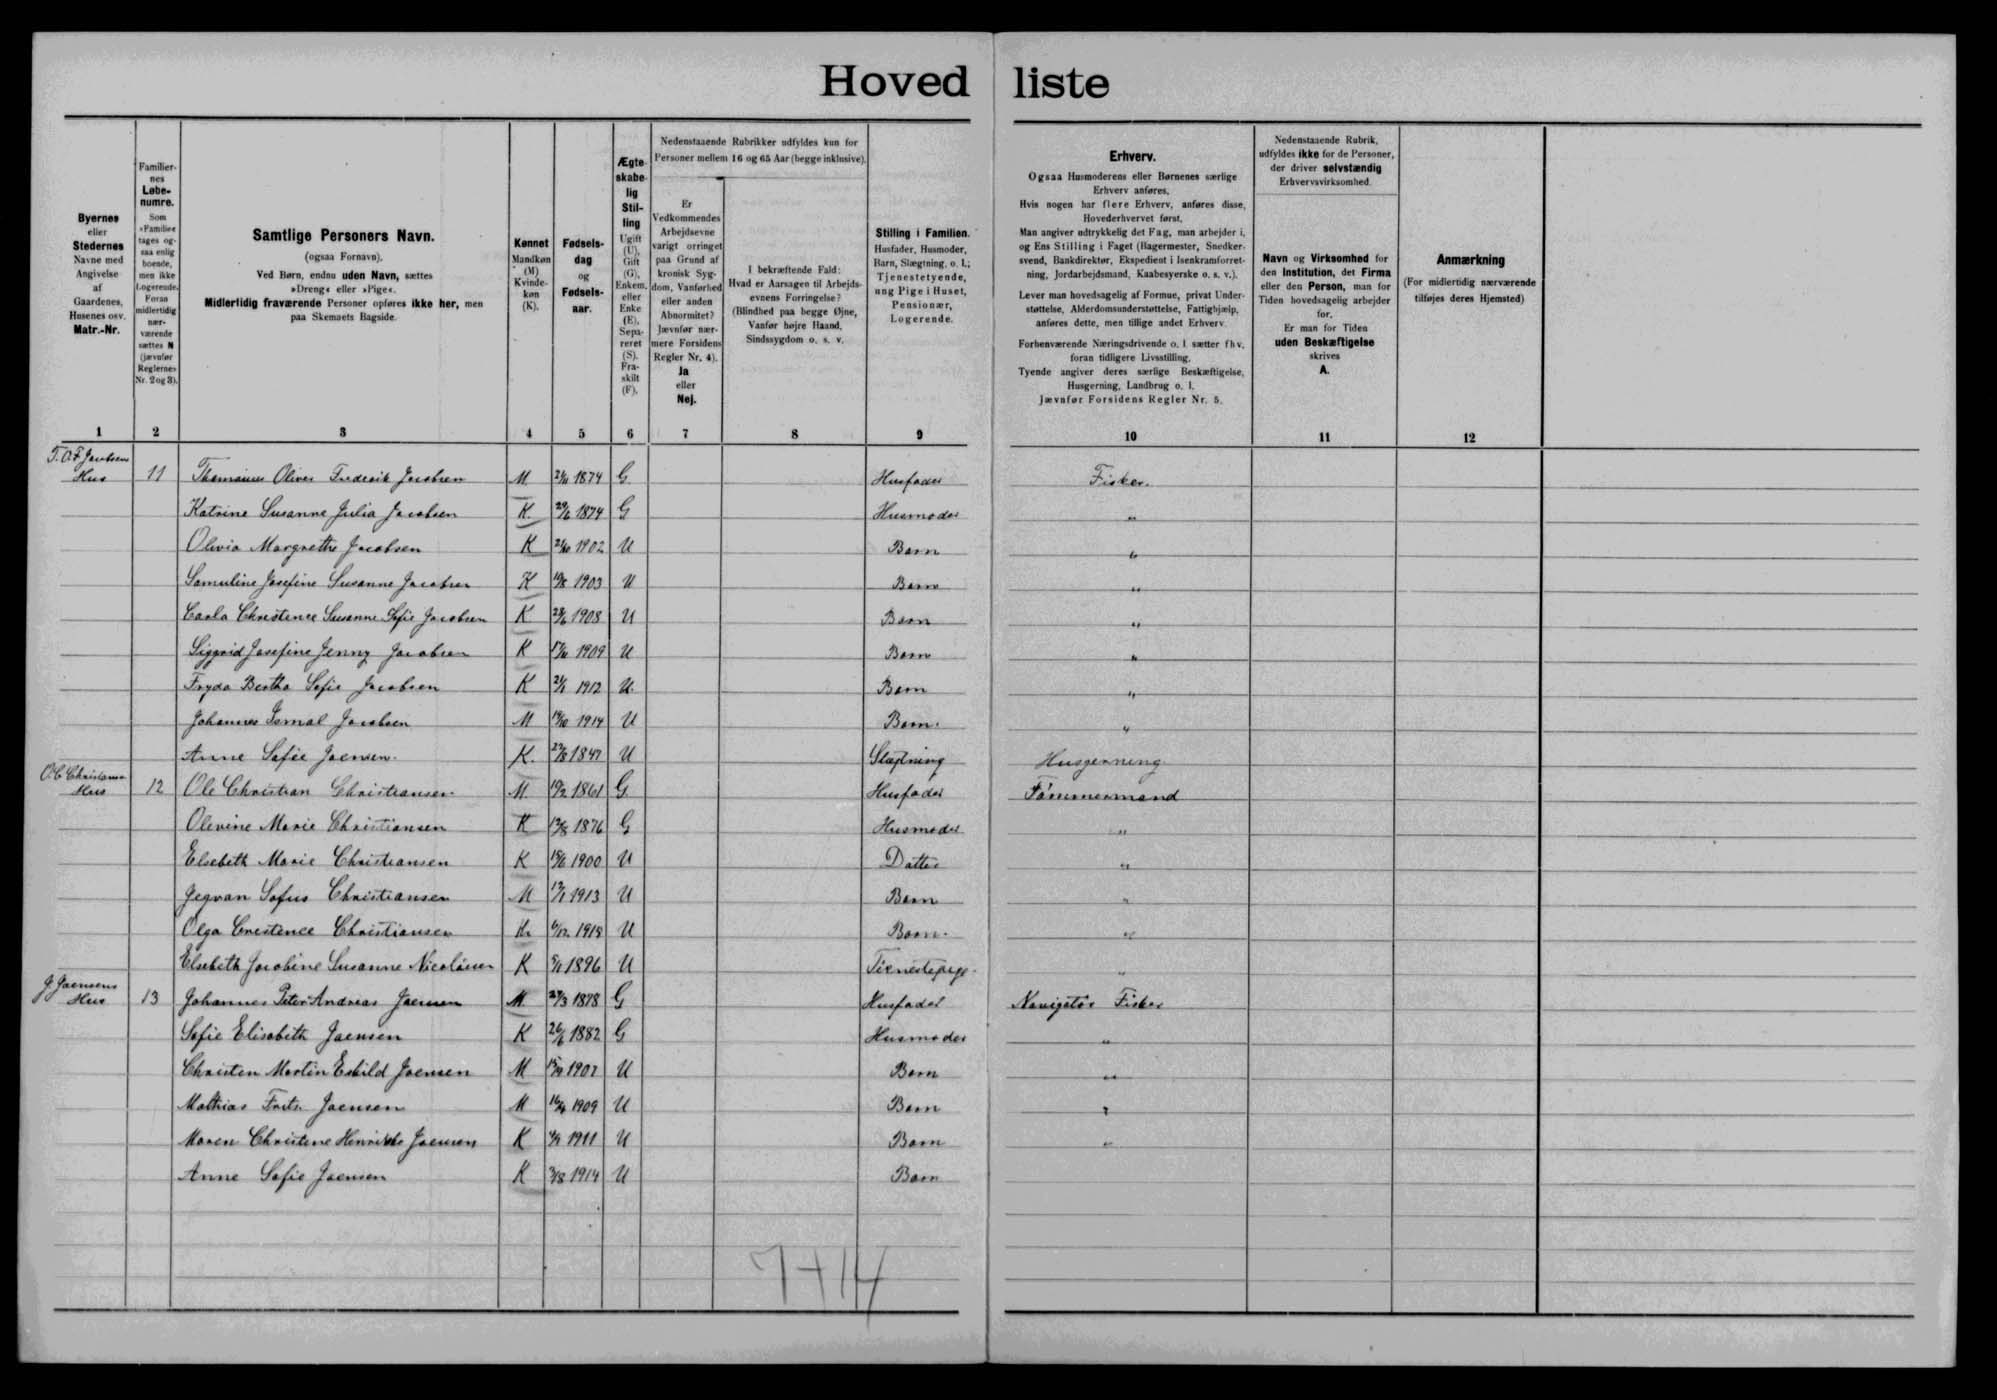 Hovedliste
Byernes eller Stedernes Navne med Angivelse af Gaardenes, Husenes osv. Matr.-Nr.
Familiernes Løbenumre. Som »Familie« tages ogsaa enlig boende, men ikke Logerende. Foran midlertidig nærværende sættes N (jævnfør Reglernes Nr. 2 og 3).
Samtlige Personers Navn. (ogsaa Fornavn). Ved Børn, endnu uden Navn, sættes »Dreng« eller »Pige«. Midlertidig fraværende Personer opføres ikke her, men paa Skemaets Bagside.
Kønnet Mandkøn (M) Kvindekøn (K).
Fødselsdag og Fødselsaar.
Ægteskabelig Stilling Ugift (U), Gift (G), Enkem. eller Enke (E), Separeret (S). Fraskilt (F).
Nedenstaaende Rubrikker udfyldes kun for Personer mellem 16 og 65 Aar (begge inklusive).
Er Vedkommendes Arbejdsevne varigt forringet paa Grund af kronisk Sygdom, Vanførhed eller anden Abnormitet? Jævnfør nærmere Forsidens Regler Nr. 4). Ja eller Nej.
I bekræftende Fald: Hvad er Aarsagen til Arbejdsevnens Forringelse? (Blindhed paa begge Øjne, Vanfør højre Haand, Sindssygdom o. s. v.
Stilling i Familien. Husfader, Husmoder, Barn, Slægtning, o. l.; Tjenestetyende, ung Pige i Huset, Pensionær, Logerende.
Erhverv.
Ogsaa Husmoderens eller Børnenes særlige Erhverv anføres.
Hvis nogen har flere Erhverv, anføres disse, Hovederhvervet først.
Man angiver udtrykkelig det Fag, man arbejder i, og Ens Stilling i Faget (Bagermester, Snedkersvend, Bankdirektør, Ekspedient i Isenkramforretning, Jordarbejdsmand, Kaabesyerske o. s. v.).
Lever man hovedsagelig af Formue, privat Understøttelse, Alderdomsunderstøttelse, Fattighjælp, anføres dette, men tillige andet Erhverv.
Forhenværende Næringsdrivende o. l. sætter fhv. foran tidligere Livsstilling.
Tyende angiver deres særlige Beskæftigelse, Husgerning, Landbrug o. l.
Jævnfør Forsidens Regler Nr. 5.
Nedenstaaende Rubrik, udfyldes ikke for de Personer, der driver selvstændig Erhvervsvirksomhed.
Navn og Virksomhed for den Institution, det Firma eller den Person, man for Tiden hovedsagelig arbejder for.
Er man for Tiden uden Beskæftigelse skrives A.
Anmærkning (For midlertidig nærværende tilføjes deres Hjemsted)
1 2 3 4 5 6 7 8 9 10 11 12
T. O. F. Jacobsens
Hus 11 Thomines Oliver Frederik Jacobsen M 1874 G Husfader Fisker.
Katrine Susanne Julia Jacobsen K. 29/6 1874 G Husmoder "
Olivia Margrethe Jacobsen K 1902 U Barn "
Samuline Josefine Susanne Jacobsen K 1903 U Barn "
Carla Christence Susanne Sofie Jacobsen K 1908 U Barn "
Siggrid Josefine Jenny Jacobsen K 1909 U Barn "
Fryda Bertha Sofie Jacobsen K 1912 U. Barn "
Johannes Jacobsen M 1914 U Barn. "
Anne Sofie Joensen. K. U Slægtning Husgerning
O. C. Christiansens
Hus 12 Ole Christian Christiansen M. 19/2 1861 G. Husfader Tømmermand
Olevine Marie Christiansen K 1876 G Husmoder "
Elsebeth Marie Christiansen K 1900 U Datter "
Jegvan Sofus Christiansen M 1913 U Barn "
Olga Crestence Christiansen K. U Barn. "
Elsebeth Jacobine Susanne Nicoläisen K 1896 U Tienestepige. "
J. Joensens
Hus 13 Johannes Peter Andreas Joensen M. 1878 G Husfader Navigatør Fisker
Sofie Elisabeth Joensen K 26/6 1882 G Husmoder "
Christen Martin Eskild Joensen M 1907 U Barn "
Mathias Frits Joensen M 16/4 1909 U Barn "
Maren Christine Henrikke Joensen K 1911 U Barn "
Anne Sofie Joensen K 1914 U Barn
7+14